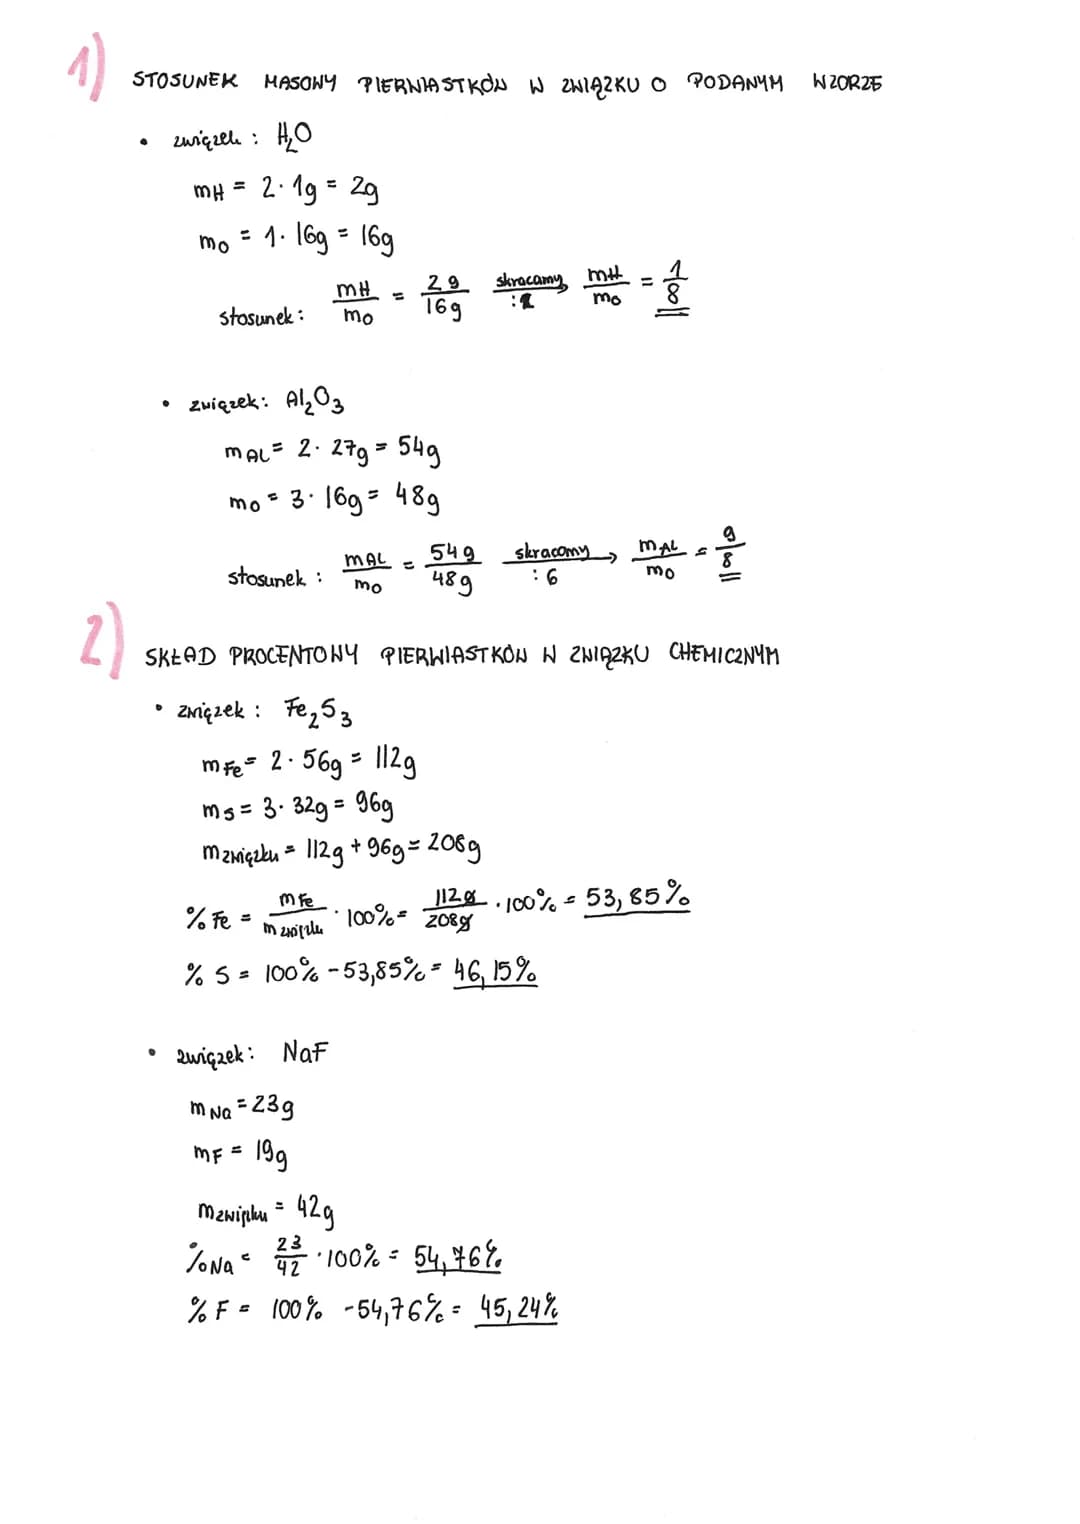 1) STOSUNEK MASOWY PIERWIASTKÓW W ZWIĄZKU O PODANYM WZORZE
• związek : H₂O
mH = 2 · 1g = 2g
mO = 1 · 16g = 16g
stosunek : mH/mO = 2g/16g skracamy :2 mH/mO = 1/8
• związek : Al₂O₃
mAL = 2 · 27g = 54g
mO = 3 · 16g = 48g
stosunek : mAL/mO = 54g/48g skracamy :6 → mAL/mO = 9/8
2) SKŁAD PROCENTOWY PIERWIASTKÓW W ZWIĄZKU CHEMICZNYM
• związek : Fe₂S₃
mFe = 2 · 56g = 112g
mS = 3 · 32g = 96g
mzwiązku = 112g + 96g = 208g
% Fe = mFe/mzwiązku · 100% = 112g/208g · 100% = 53,85%
% S = 100% - 53,85% = 46,15%
• związek : NaF
mNa = 23g
mF = 19g
mzwiązku = 42g
%Na = 23/42 · 100% = 54,76%
% F = 100% - 54,76% = 45,24%